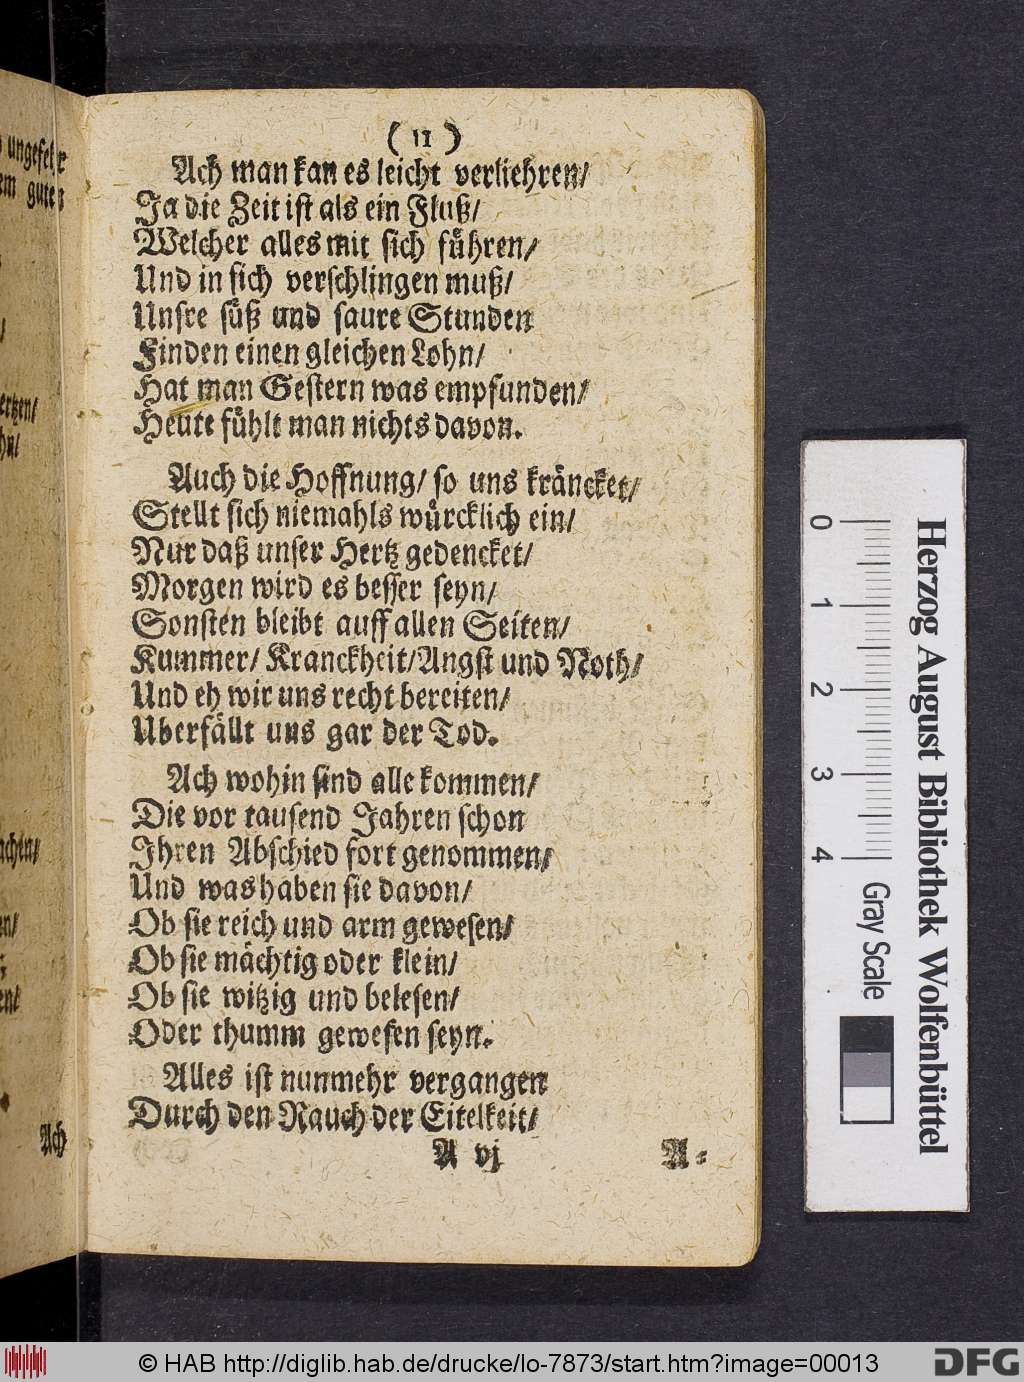 ( 11 )
Ach man kan es leicht verliehren/
Ja die Zeit ist als ein Fluß/
Welcher alles mit sich führen/
Und in sich verschlingen muß/
Unsre süß und saure Stunden
Finden einen gleichen Lohn/
Hat man Gestern was empfunden/
Heute fühlt man nichts davon.
Auch die Hoffnung/ so uns kräncket/
Stellt sich niemahls würcklich ein/
Nur daß unser Hertz gedencket/
Morgen wird es besser seyn/
Sonsten bleibt auff allen Seiten/
Kummer/ Kranckheit/ Angst und Noth/
Und eh wir uns recht bereiten/
Uberfällt uns gar der Tod.
Ach wohin sind alle kommen/
Die vor tausend Jahren schon
Ihren Abschied fort genommen/
Und was haben sie davon/
Ob sie reich und arm gewesen/
Ob sie mächtig oder klein/
Ob sie witzig und belesen/
Oder thumm gewesen seyn.
Alles ist nunmehr vergangen
Durch den Rauch der Eitelkeit/
A vj
A-
ungefehr
guten
ertzen/
Ach
0 1 2 3 4
Herzog August Bibliothek Wolfenbüttel
Gray Scale
© HAB http://diglib.hab.de/drucke/lo-7873/start.htm?image=00013
DFG